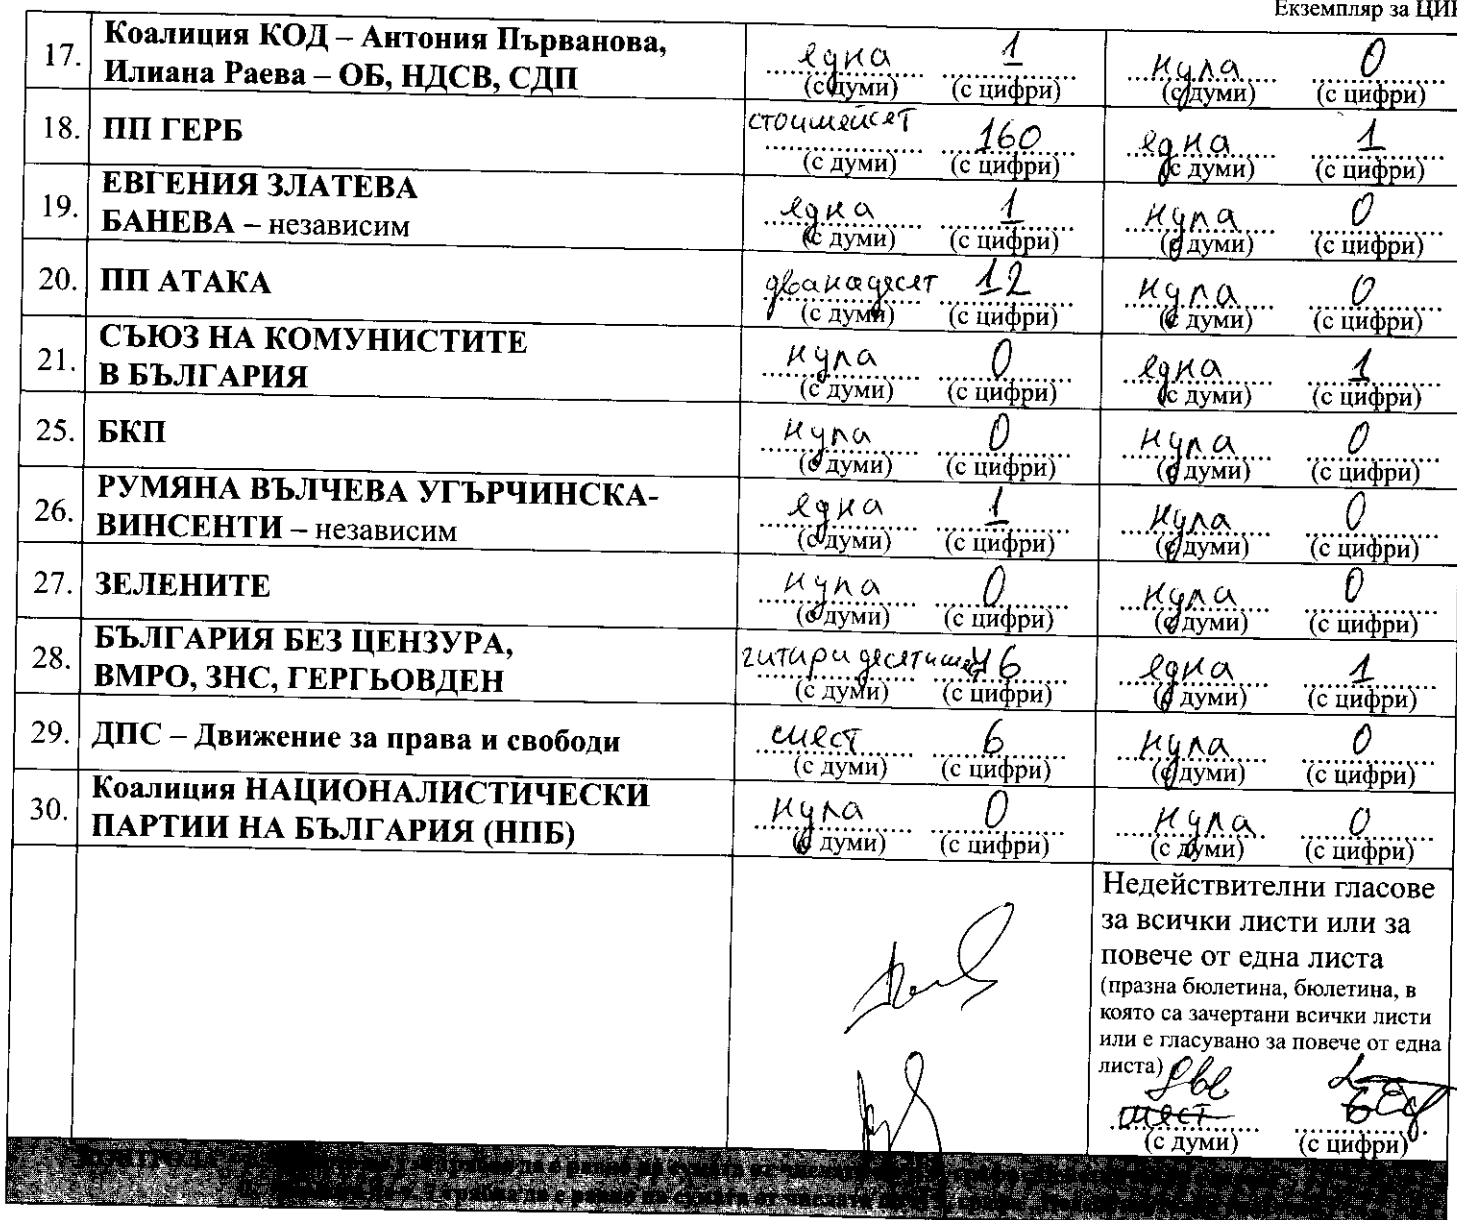 Екземпляр за ЦИК
17. Коалиция КОД – Антония Първанова, Илиана Раева – ОБ, НДСВ, СДП една (с думи) 1 (с цифри) нула (с думи) 0 (с цифри)
18. ПП ГЕРБ стоишейсет (с думи) 160 (с цифри) една (с думи) 1 (с цифри)
19. ЕВГЕНИЯ ЗЛАТЕВА БАНЕВА – независим една (с думи) 1 (с цифри) нула (с думи) 0 (с цифри)
20. ПП АТАКА дванадесет (с думи) 12 (с цифри) нула (с думи) 0 (с цифри)
21. СЪЮЗ НА КОМУНИСТИТЕ В БЪЛГАРИЯ нула (с думи) 0 (с цифри) една (с думи) 1 (с цифри)
25. БКП нула (с думи) 0 (с цифри) нула (с думи) 0 (с цифри)
26. РУМЯНА ВЪЛЧЕВА УГЪРЧИНСКА-ВИНСЕНТИ – независим една (с думи) 1 (с цифри) нула (с думи) 0 (с цифри)
27. ЗЕЛЕНИТЕ нула (с думи) 0 (с цифри) нула (с думи) 0 (с цифри)
28. БЪЛГАРИЯ БЕЗ ЦЕНЗУРА, ВМРО, ЗНС, ГЕРГЬОВДЕН (с думи) 46 (с цифри) една (с думи) 1 (с цифри)
29. ДПС – Движение за права и свободи шест (с думи) 6 (с цифри) нула (с думи) 0 (с цифри)
30. Коалиция НАЦИОНАЛИСТИЧЕСКИ ПАРТИИ НА БЪЛГАРИЯ (НПБ) нула (с думи) 0 (с цифри) нула (с думи) 0 (с цифри)
Недействителни гласове
за всички листи или за
повече от една листа
(празна бюлетина, бюлетина, в
която са зачертани всички листи
или е гласувано за повече от една
листа)
две
шест 6
(с думи) (с цифри)